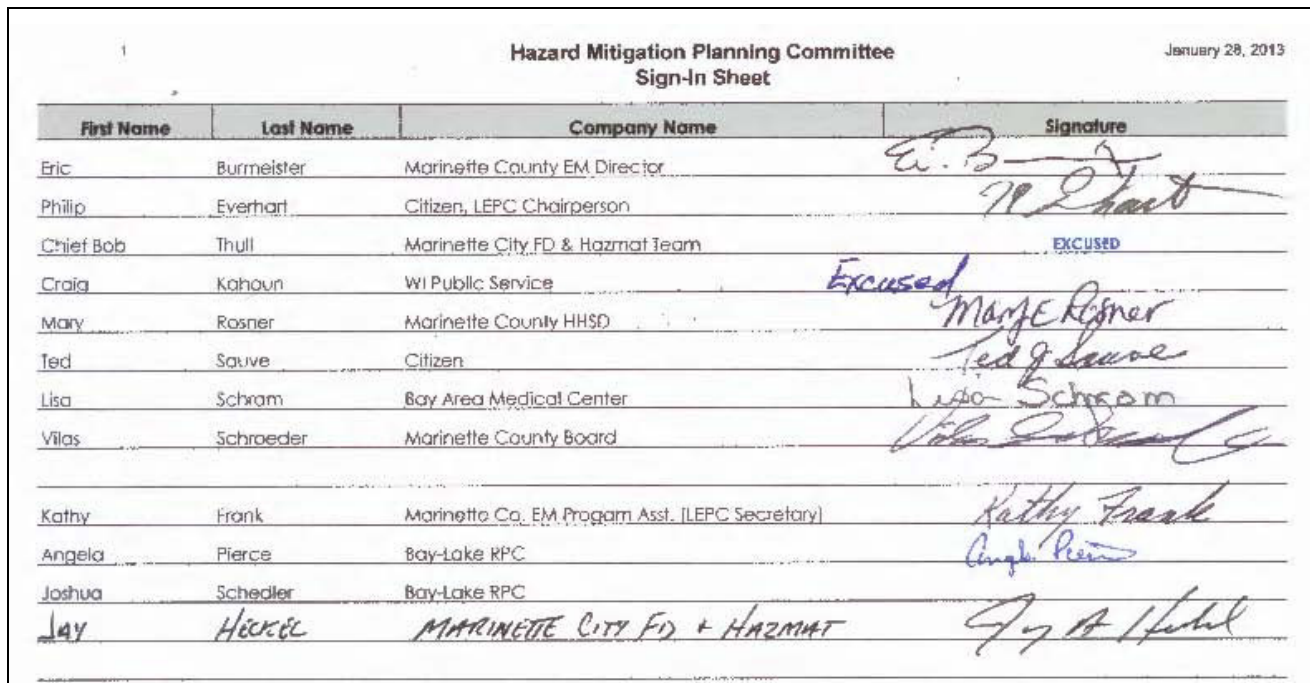 1 Hazard Mitigation Planning Committee January 28, 2013
Sign-In Sheet
First Name Last Name Company Name Signature
Eric Burmeister Marinette County EM Director E. B
Philip Everhart Citizen, LEPC Chairperson
Chief Bob Thull Marinette City FD & Hazmat Team EXCUSED
Craig Kahoun WI Public Service Excused
Mary Rosner Marinette County HHSD Mary E Rosner
Ted Sauve Citizen Ted J Sauve
Lisa Schram Bay Area Medical Center Lisa Schram
Vilas Schroeder Marinette County Board Vilas
Kathy Frank Marinette Co. EM Progam Asst. (LEPC Secretary) Kathy Frank
Angela Pierce Bay-Lake RPC
Joshua Schedler Bay-Lake RPC
Jay HECKEL MARINETTE CITY FD + HAZMAT Jay A Heckel